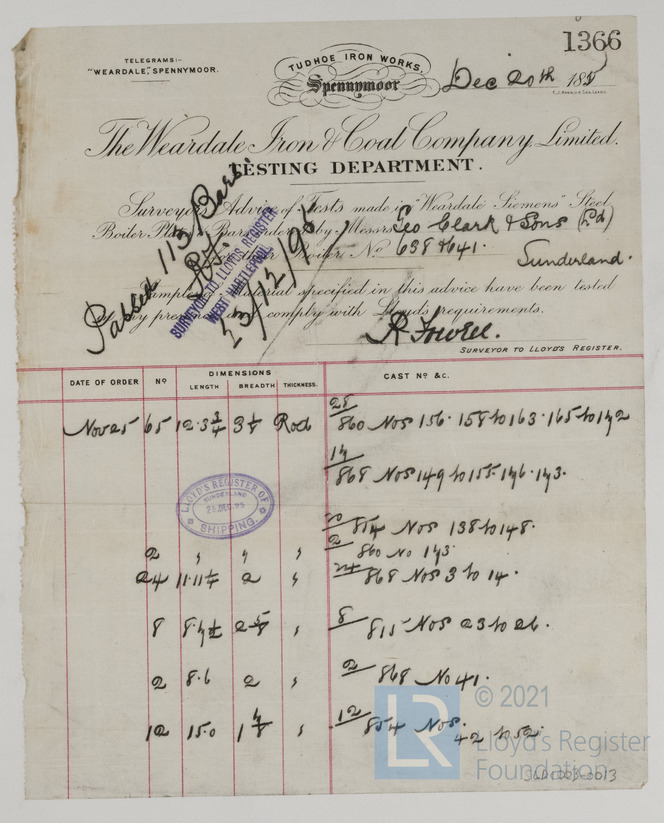 1366
TELEGRAMS:-
"WEARDALE," SPENNYMOOR.
TUDHOE IRON WORKS,
Spennymoor
Dec 20th 189
The Weardale Iron & Coal Company, Limited.
TESTING DEPARTMENT.
Surveyor's Advice of Tests made in "Weardale Siemens" Steel
Boiler Plates by Messrs Geo Clark & Sons (Ld)
Boiler No 638 & 641.
Sunderland.
Material specified in this advice have been tested
comply with Lloyd's requirements.
SURVEYOR TO LLOYD'S REGISTER.
Passed 113 Bars
SURVEYOR TO LLOYDS REGISTER
WEST HARTLEPOOL
23/12/95
DATE OF ORDER No DIMENSIONS CAST Nos &c.
LENGTH BREADTH THICKNESS.
Nov 25 65 12.3 3/4 3 1/8 Rod 860 Nos 156. 158 to 163. 165 to 172
868 Nos 149 to 155. 173.
LLOYD'S REGISTER OF
SUNDERLAND
SHIPPING.
854 Nos 138 to 148.
2 " " " 2 860 No 173
24 11.11 2 " 24 868 Nos 3 to 14.
8 2 5/8 " 8 815 Nos 23 to 26.
2 8.6 2 " 2 868 No 41.
12 15.0 1 7/8 " 12 854 Nos.
42 to 52.
LR © 2021
Lloyd's Register
Foundation